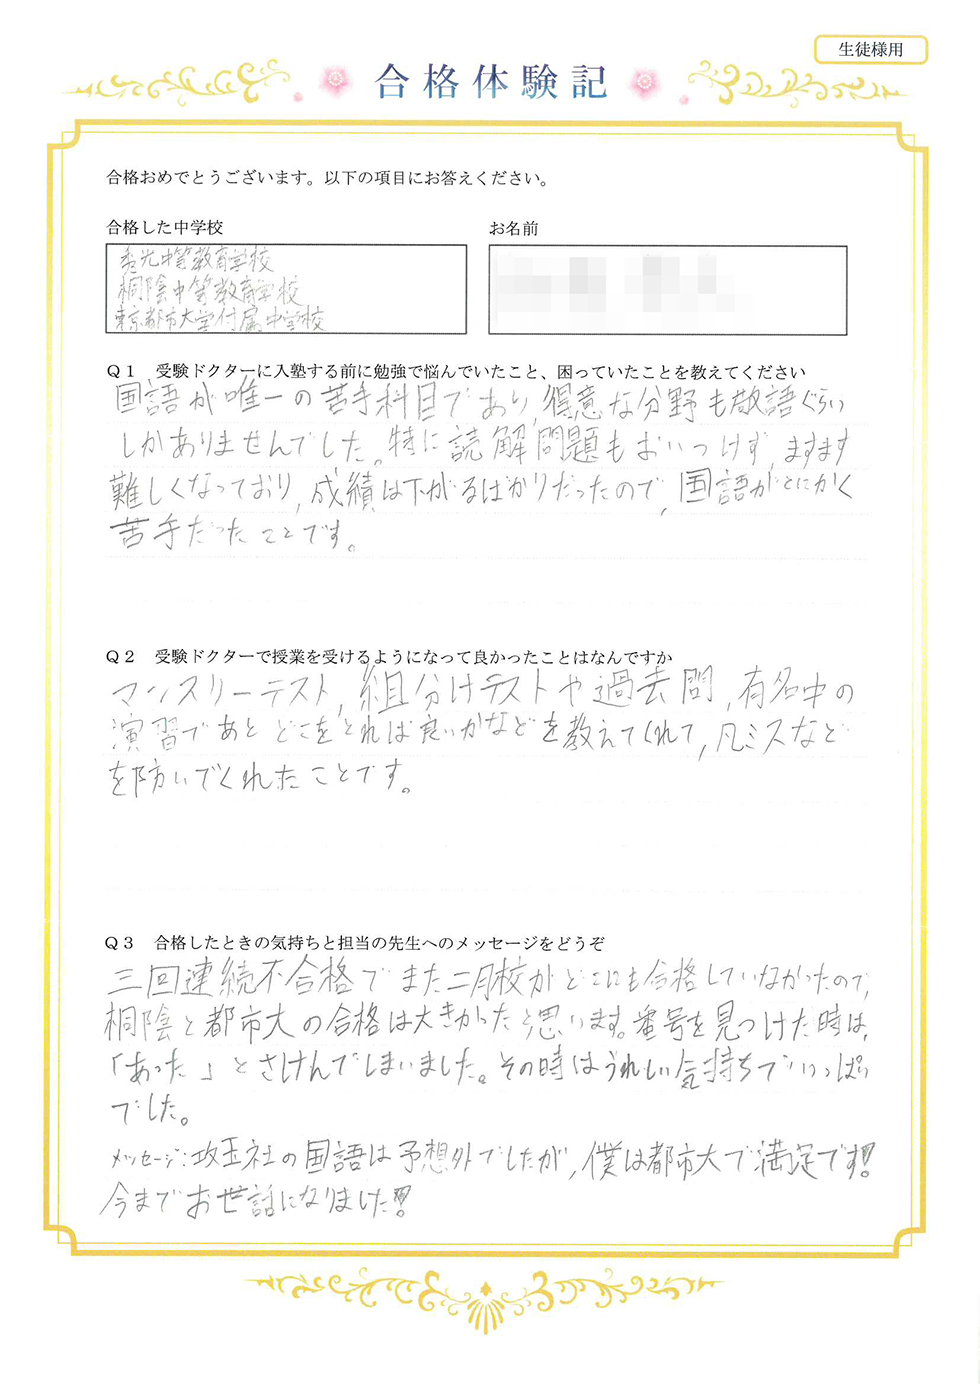 生徒様用
合格体験記
合格おめでとうございます。以下の項目にお答えください。
合格した中学校
お名前
秀光中等教育学校
桐陰中等教育学校
東京都市大学付属中学校
Q1 受験ドクターに入塾する前に勉強で悩んでいたこと、困っていたことを教えてください
国語が唯一の苦手科目であり,得意な分野も敬語ぐらい
しかありませんでした。特に読解問題もおいつけず,ますます
難しくなっており,成績は下がるばかりだったので,国語がとにかく
苦手だったことです。
Q2 受験ドクターで授業を受けるようになって良かったことはなんですか
マンスリーテスト,組分けテストや過去問,有名中の
演習であとどこをとれば良いかなどを教えてくれて,凡ミスなど
を防いでくれたことです。
Q3 合格したときの気持ちと担当の先生へのメッセージをどうぞ
三回連続不合格でまた二月校がどこにも合格していなかったので,
桐陰と都市大の合格は大きかったと思います。番号を見つけた時は,
「あった」とさけんでしまいました。その時はうれしい気持ちでいっぱい
でした。
メッセージ:攻玉社の国語は予想外でしたが,僕は都市大で満足です!
今までお世話になりました!